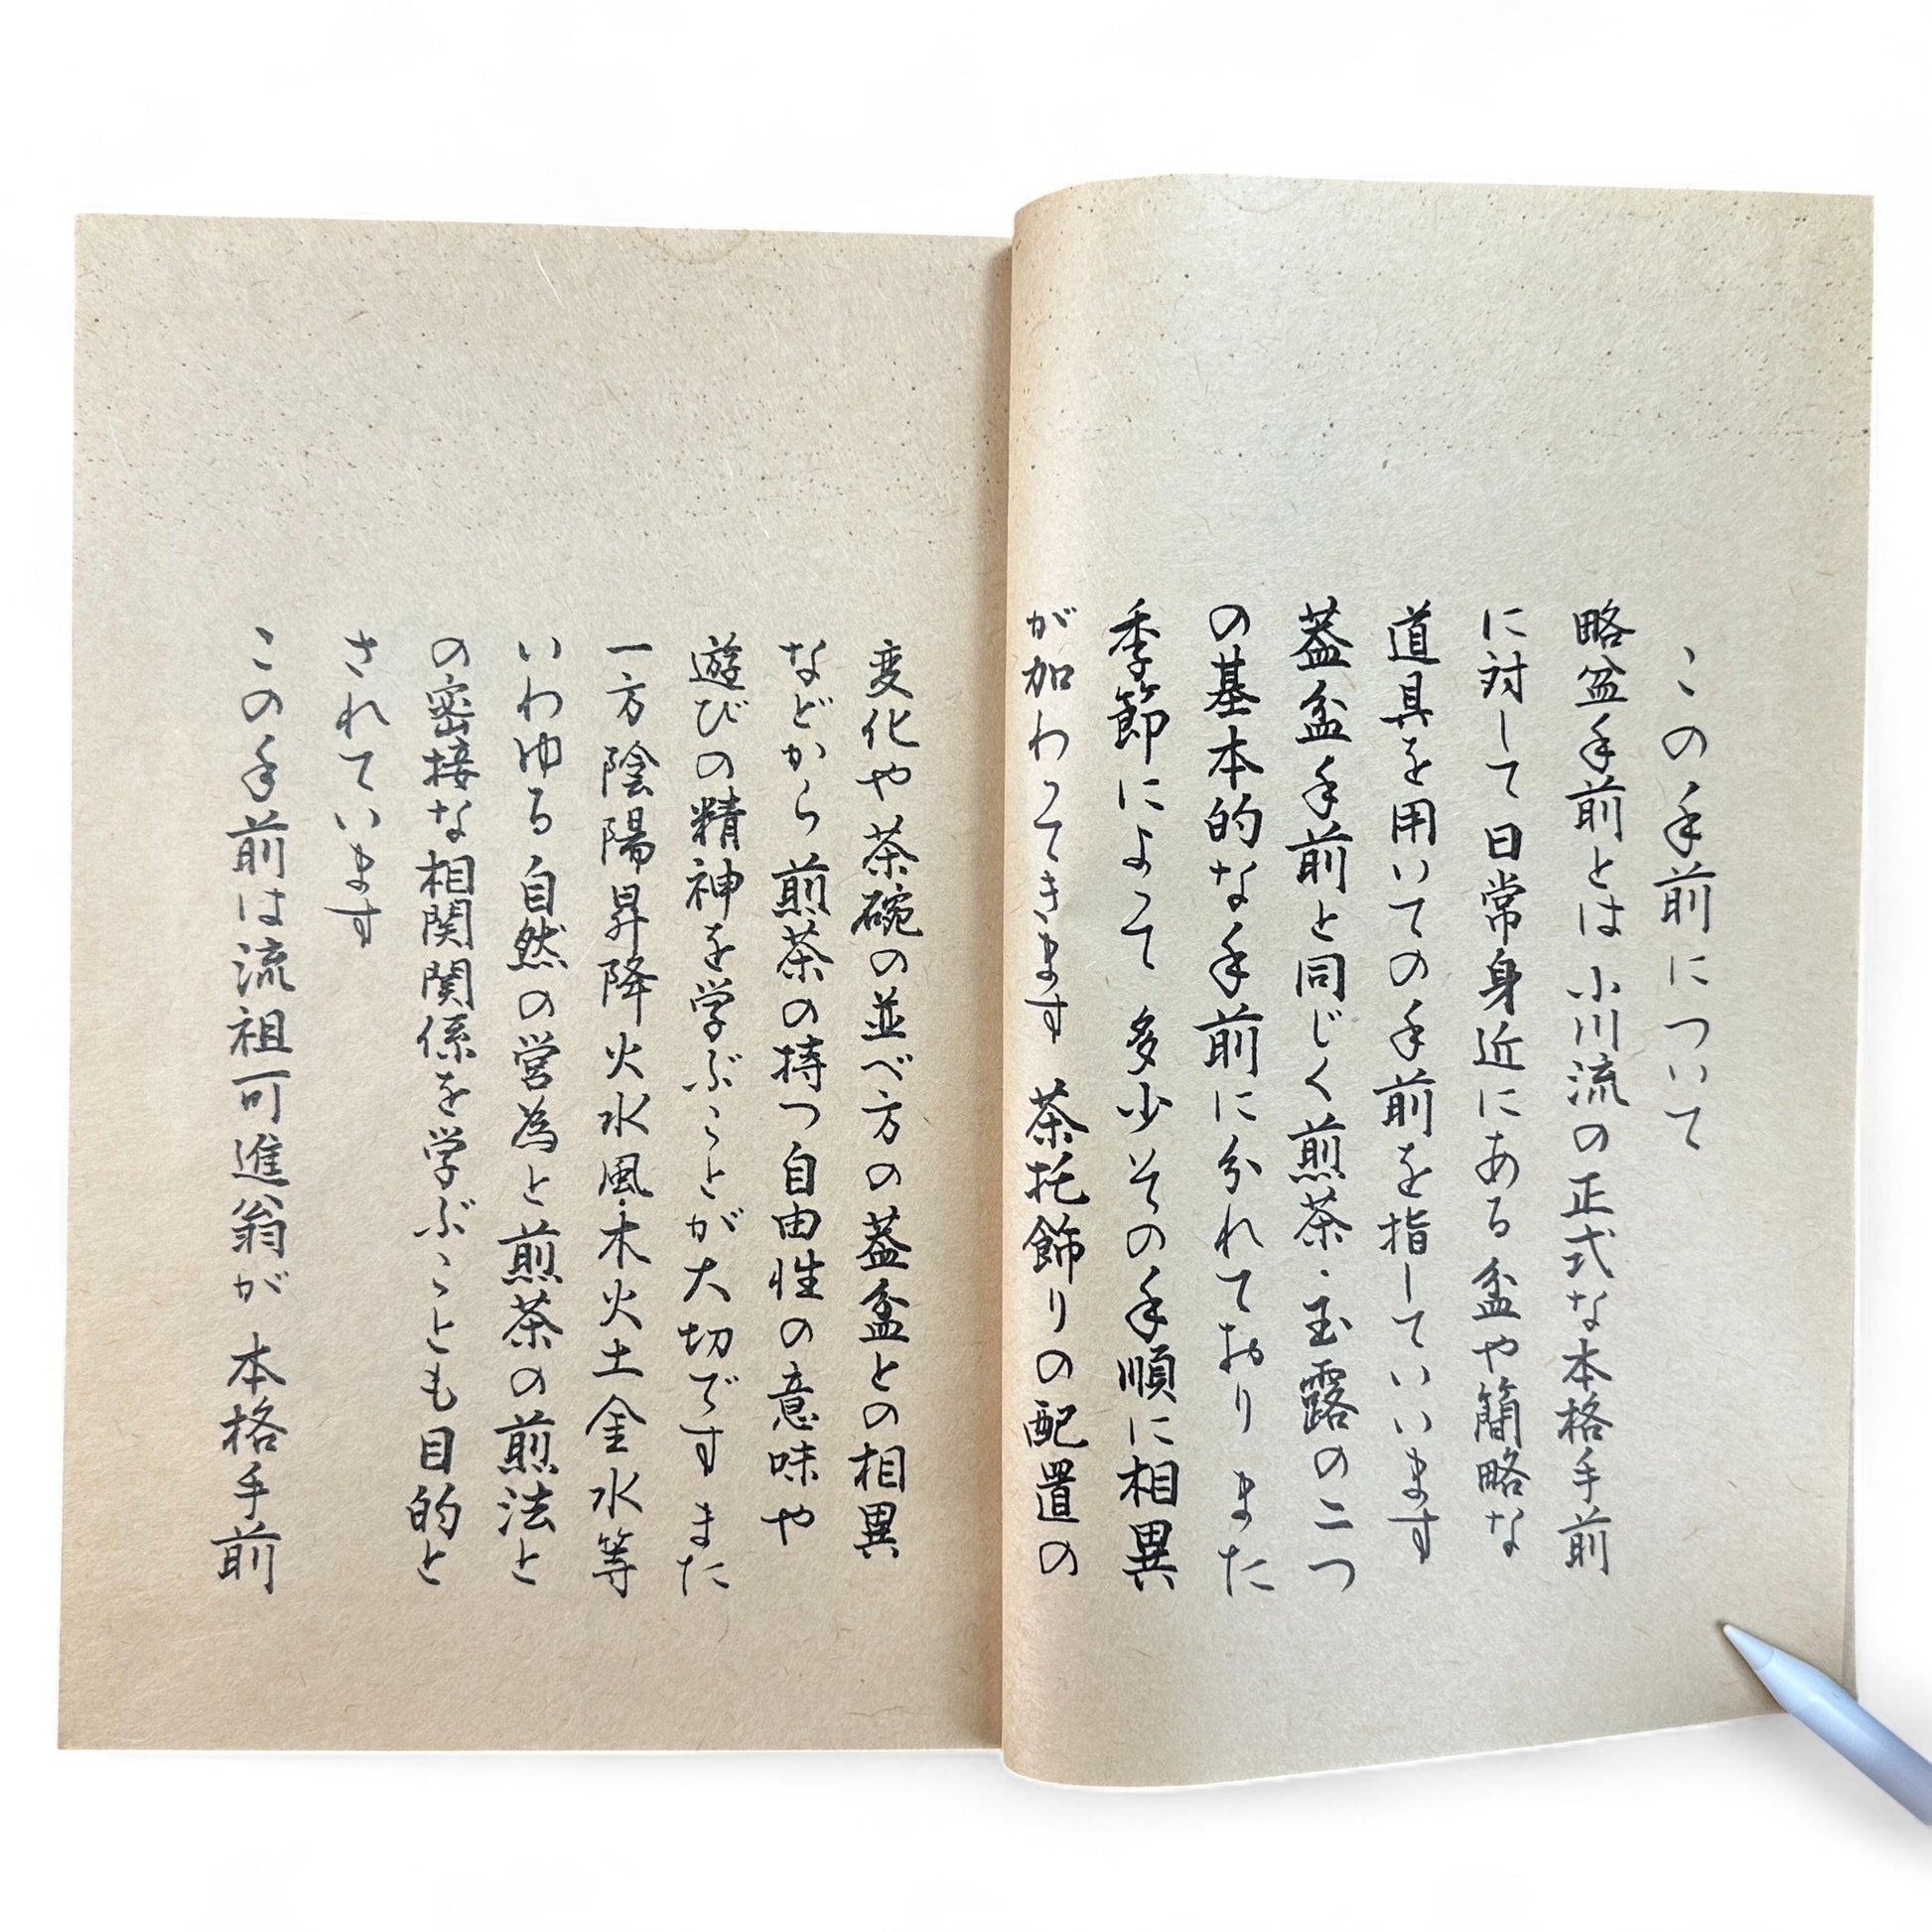 この手前について
略盆手前とは小川流の正式な本格手前
に対して日常身近にある盆や簡略な
道具を用いての手前を指していいます
蓋盆手前と同じく煎茶・玉露の二つ
の基本的な手前に分れており また
季節によって 多少その手順に相異
が加わってきます 茶托飾りの配置の
変化や茶碗の並べ方の蓋盆との相異
などから煎茶の持つ自由性の意味や
遊びの精神を学ぶことが大切です また
一方陰陽昇降火水風・木火土金水等
いわゆる自然の営為と煎茶の煎法と
の密接な相関関係を学ぶことも目的と
されています
この手前は流祖可進翁が 本格手前